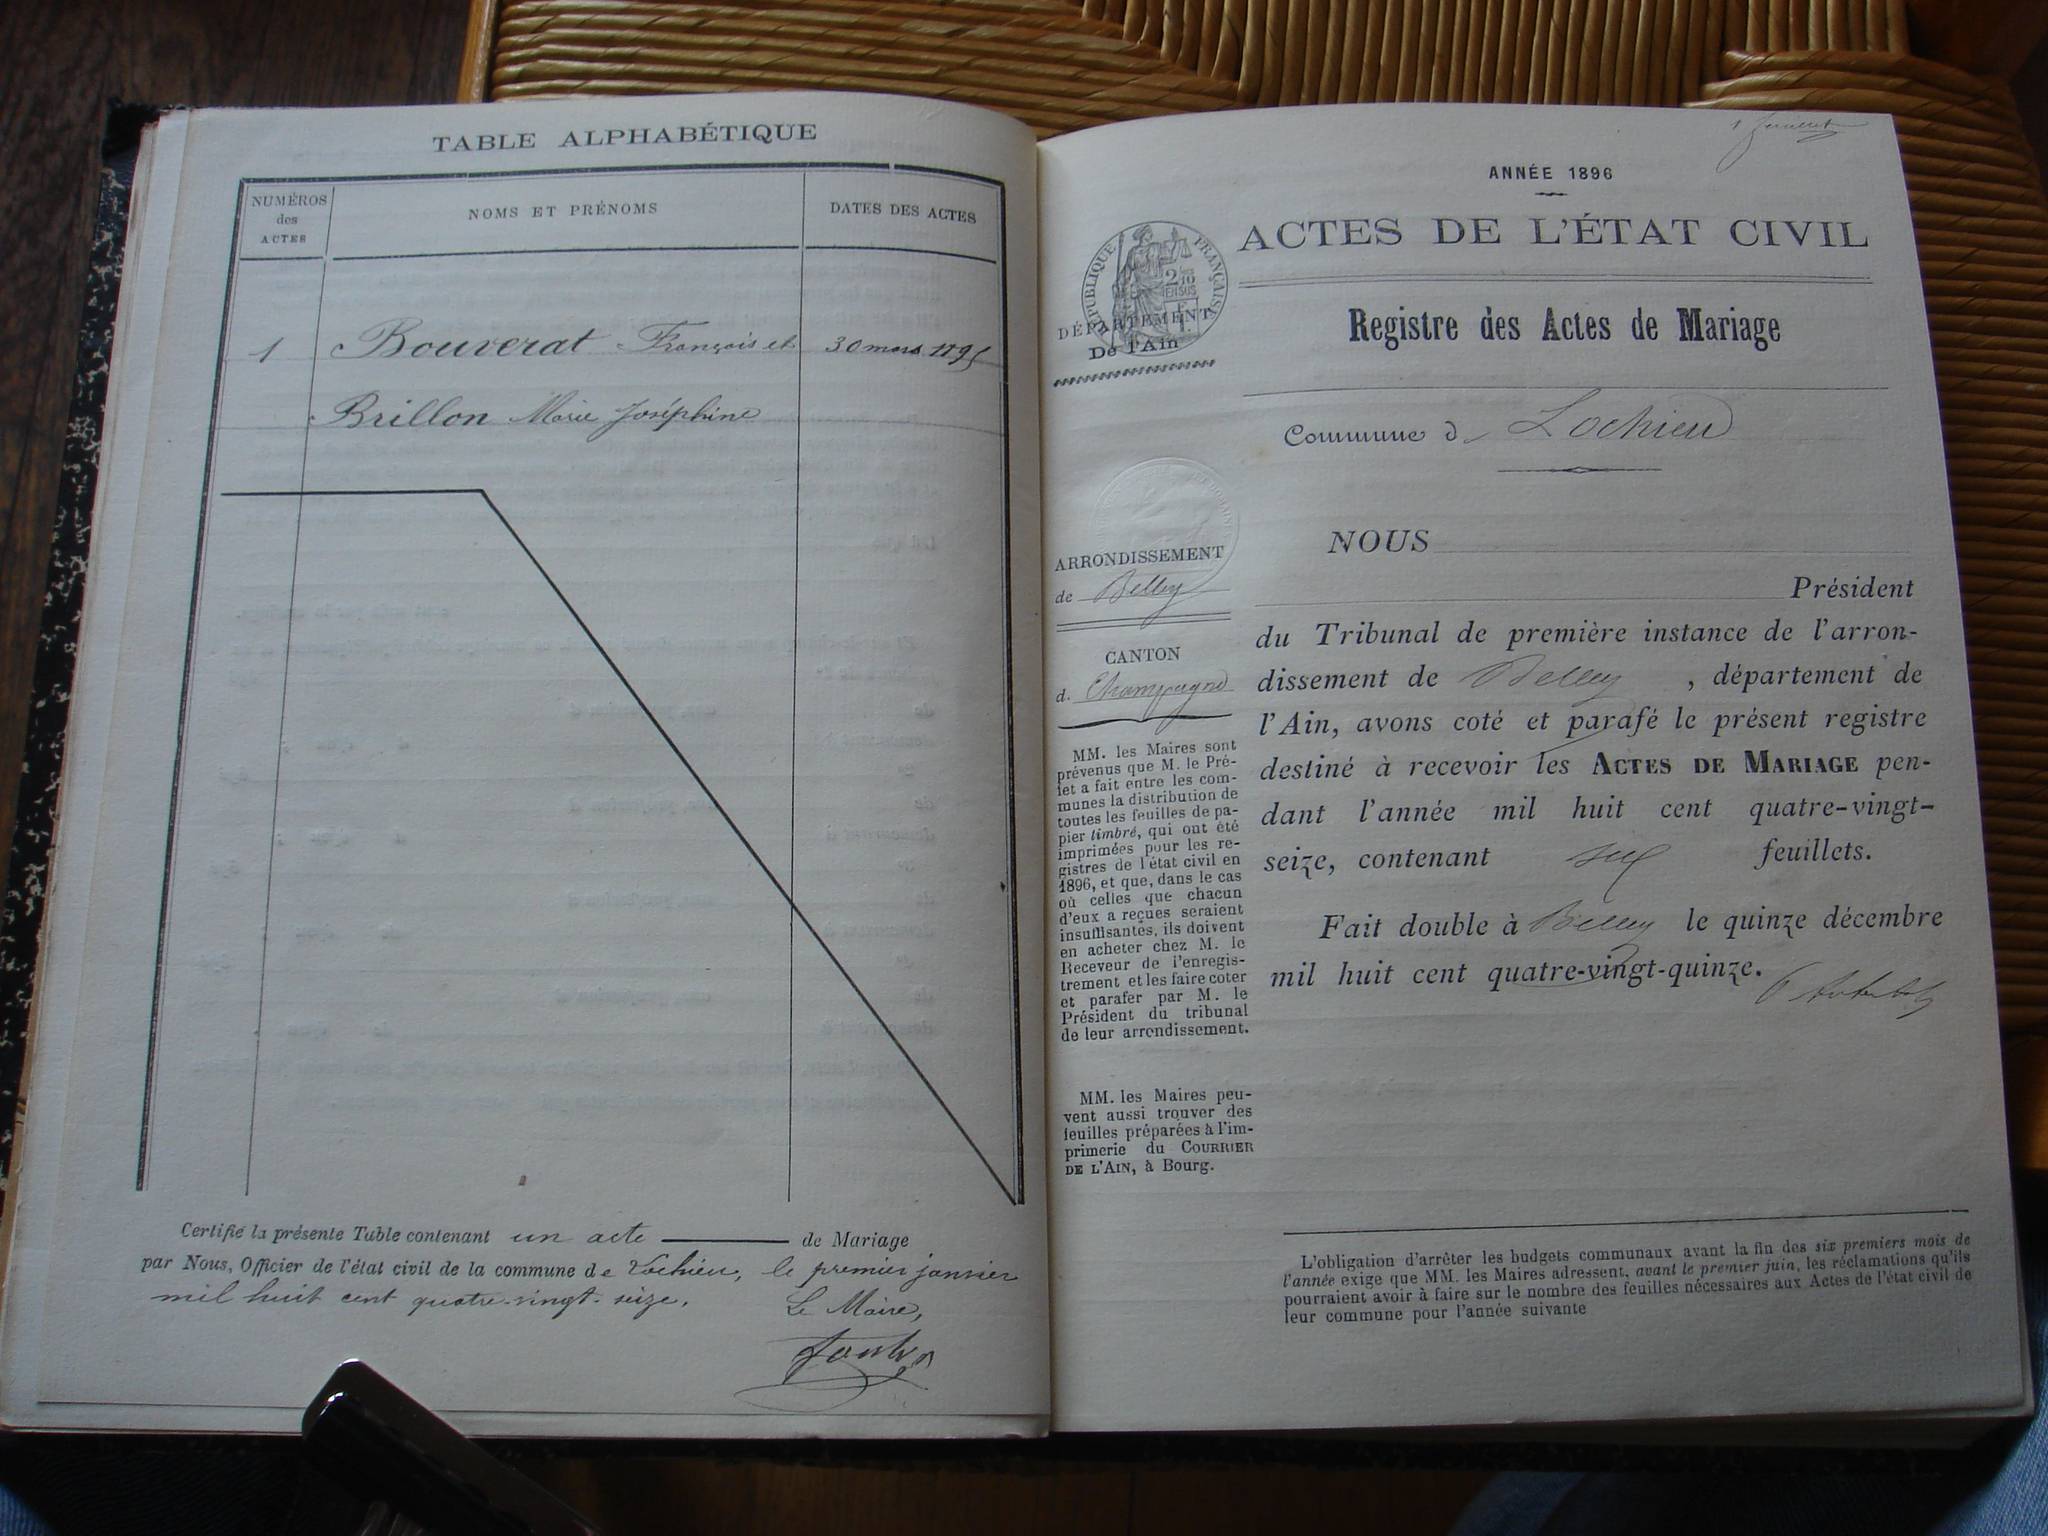 TABLE ALPHABÉTIQUE
NUMÉROS
des
ACTES
NOMS ET PRÉNOMS
DATES DES ACTES
1 Bouverat François et 30 mars 1895
Brillon Marie Joséphine
Certifié la présente Table contenant un acte de Mariage
par Nous, Officier de l'état civil de la commune de Lochieu, le premier janvier
mil huit cent quatre-vingt-seize.
Le Maire,
ANNÉE 1896
ACTES DE L'ÉTAT CIVIL
RÉPUBLIQUE FRANÇAISE
DÉPARTEMENT
De l'Ain
Registre des Actes de Mariage
Commune de Lochieu
ARRONDISSEMENT
de Belley
CANTON
d. Champagne
MM. les Maires sont
prévenus que M. le Pré-
fet a fait entre les com-
munes la distribution de
toutes les feuilles de pa-
pier timbré, qui ont été
imprimées pour les re-
gistres de l'état civil en
1896, et que, dans le cas
où celles que chacun
d'eux a reçues seraient
insuffisantes, ils doivent
en acheter chez M. le
Receveur de l'enregis-
trement et les faire coter
et parafer par M. le
Président du tribunal
de leur arrondissement.
MM. les Maires peu-
vent aussi trouver des
feuilles préparées à l'im-
primerie du COURRIER
DE L'AIN, à Bourg.
NOUS
Président
du Tribunal de première instance de l'arron-
dissement de Belley, département de
l'Ain, avons coté et parafé le présent registre
destiné à recevoir les ACTES DE MARIAGE pen-
dant l'année mil huit cent quatre-vingt-
seize, contenant six feuillets.
Fait double à Belley le quinze décembre
mil huit cent quatre-vingt-quinze.
L'obligation d'arrêter les budgets communaux avant la fin des six premiers mois de
l'année exige que MM. les Maires adressent, avant le premier juin, les réclamations qu'ils
pourraient avoir à faire sur le nombre des feuilles nécessaires aux Actes de l'état civil de
leur commune pour l'année suivante